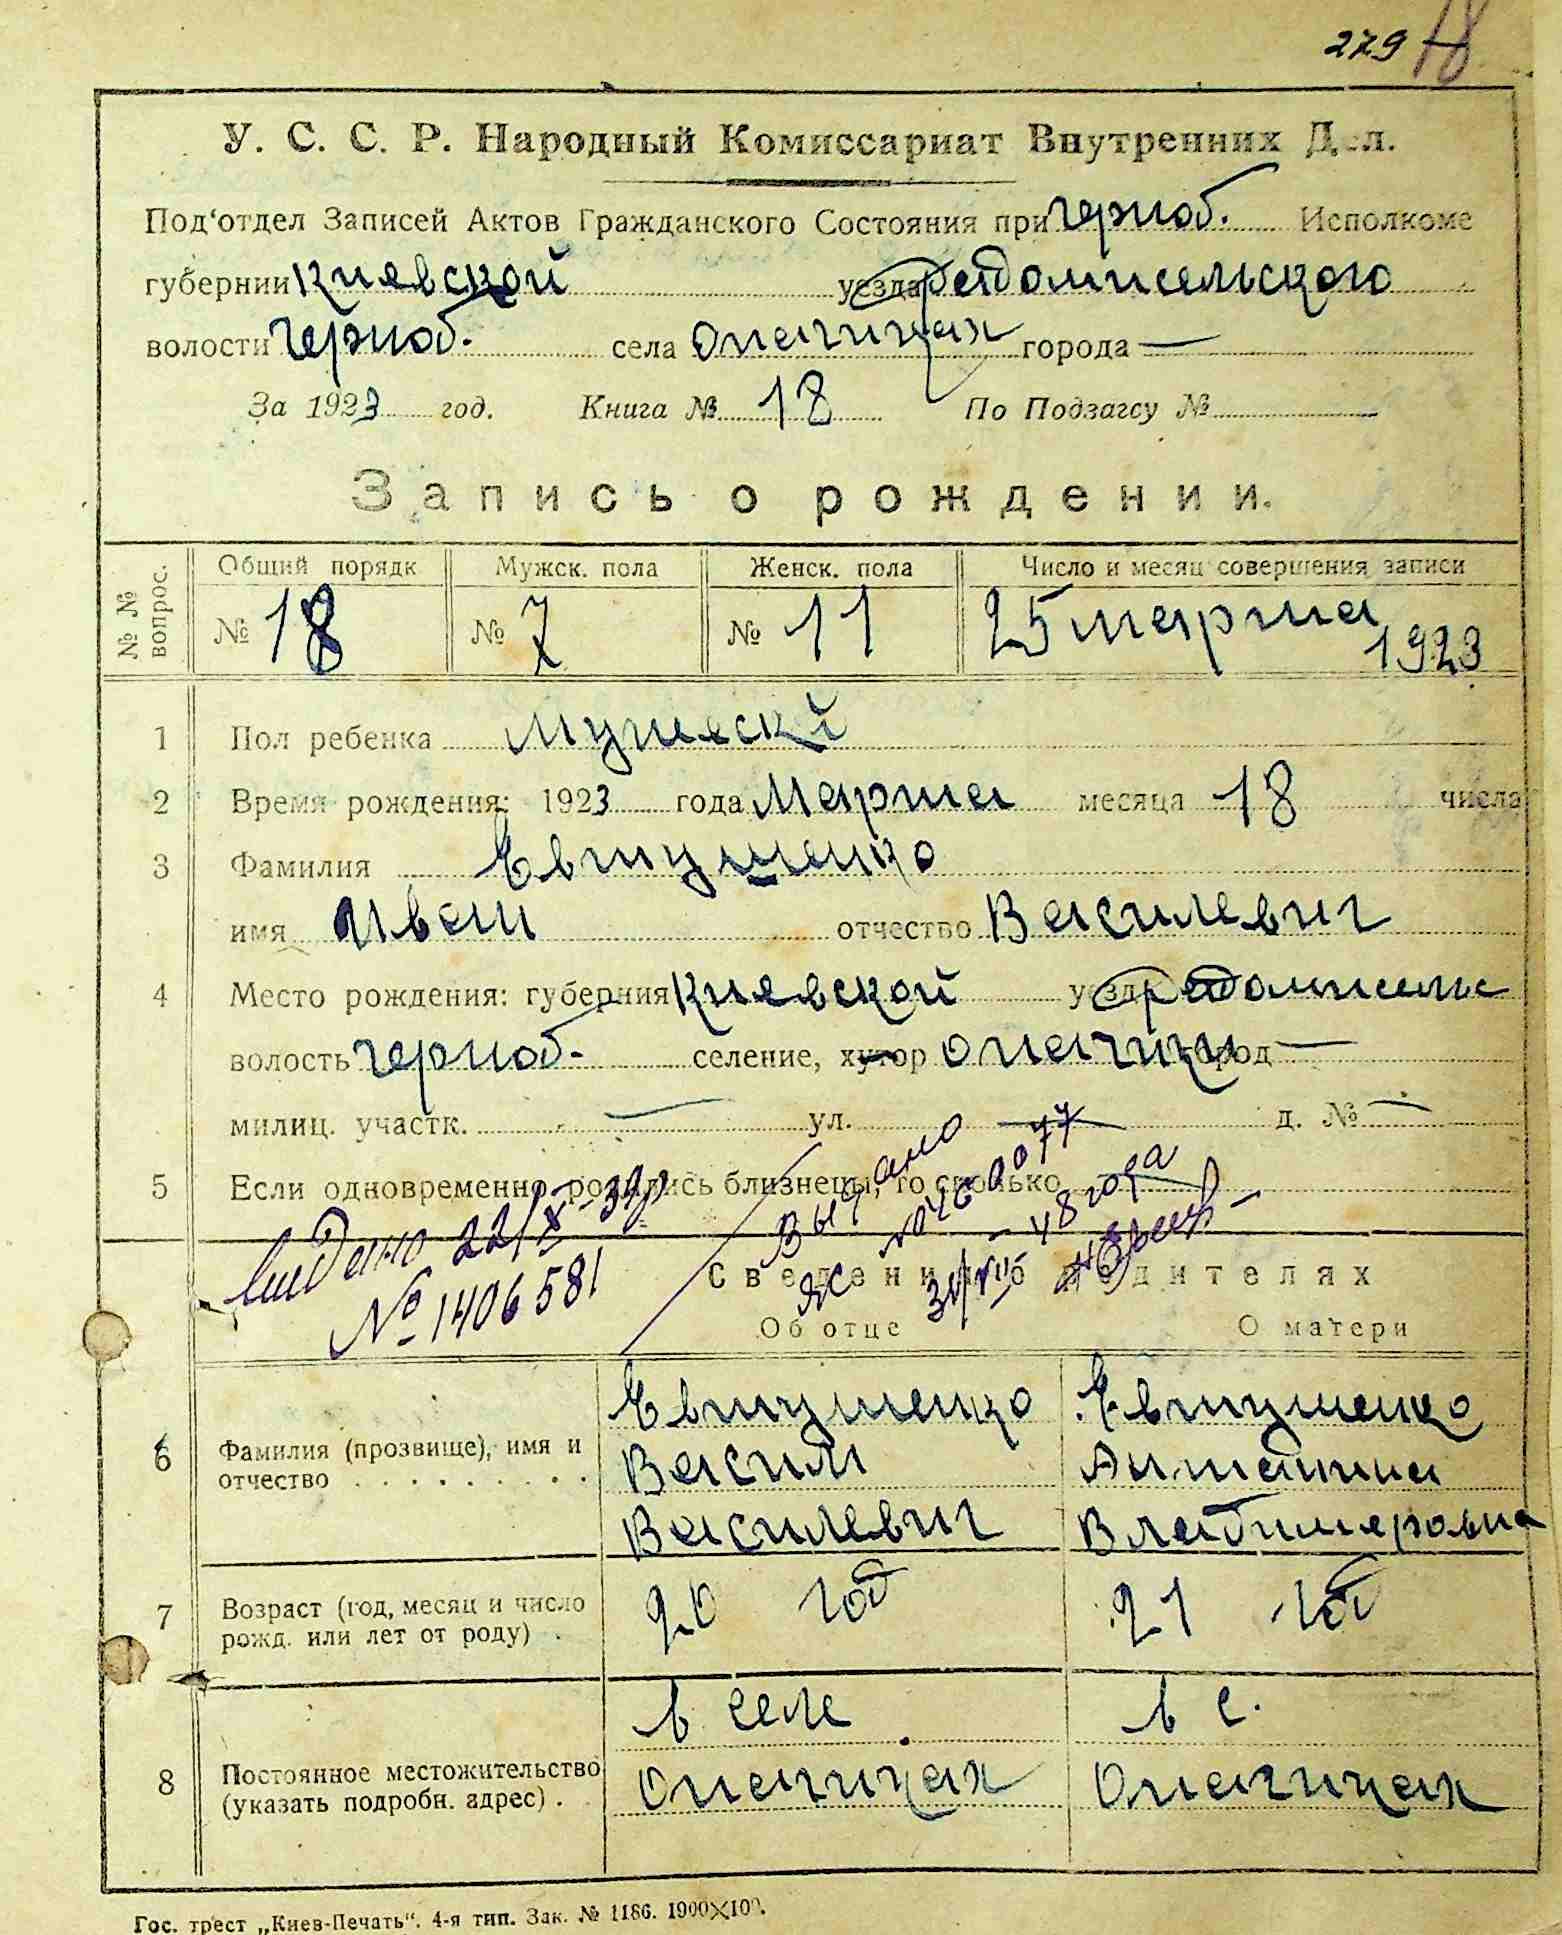 279 18
У. С. С. Р. Народный Комиссариат Внутренних Дел.
Под'отдел Записей Актов Гражданского Состояния при Черноб. Исполкоме
губернии Киявской уезда Радомисельского
волости Черноб. села Опачицах города —
За 1923 год. Книга № 18 По Подзагсу №
Запись о рождении.
№ № вопрос.
Общий порядк Мужск. пола Женск. пола Число и месяц совершения записи
№ 18 № 7 № 11 25 марта 1923
1 Пол ребенка
2 Время рождения: 1923 года Марта месяца 18 числа
3 Фамилия Евтушенко
имя Иван отчество Василевич
4 Место рождения: губерния Киявской уезд Радомисельс
волость Черноб. селение, хутор Опачици город —
милиц. участк. — ул. — д. № —
5 Если одновременно родились близнецы, то сколько
Выдано 22/X-39р
№ 1406581
Выдано
ЯЮ №460077
31/VII - 48 года
Сведения об родителях
Об отце О матери
6 Фамилия (прозвище), имя и отчество
Евтушенко Евтушенко
Васил Антанина
Василевич Владимяровна
7 Возраст (год, месяц и число рожд. или лет от роду)
20 год 21 год
8 Постоянное местожительство (указать подробн. адрес)
в селе в с.
Опачицах Опачицах
Гос. трест „Киев-Печать“. 4-я тип. Зак. № 1186. 1900×100.